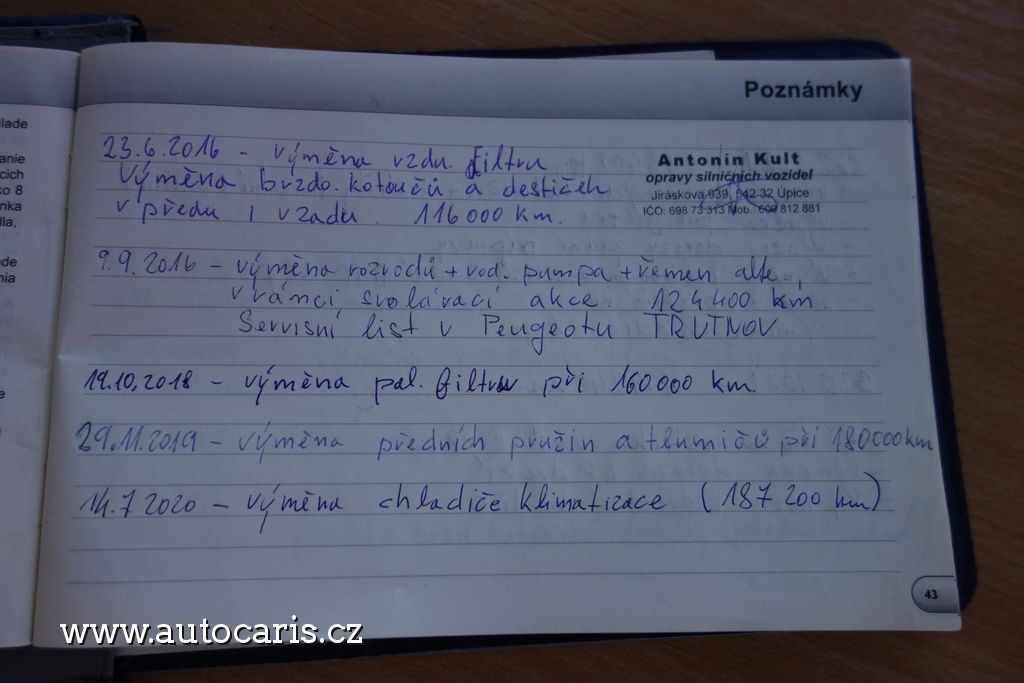 lade
anie
cich
ko 8
nka
dla,
de
nia
e
Poznámky
23.6.2016 - výměna vzdu. filtru
Výměna brzdo. kotoučů a destiček
v předu i vzadu 116000 km.
Antonín Kult
opravy silničních vozidel
Jiráskova 939, 542 32 Úpice
IČO: 698 73 313 Mob.: 608 812 881
9.9.2016 - výměna rozvodů + vod. pumpa + řemen alt.,
v rámci svolávací akce 124400 km.
Servisní list v Peugeotu TRUTNOV
19.10.2018 - výměna pal. filtru při 160000 km.
29.11.2019 - výměna předních pružin a tlumičů při 180000km
14.7 2020 - výměna chladiče klimatizace (187 200 km)
43
www.autocaris.cz